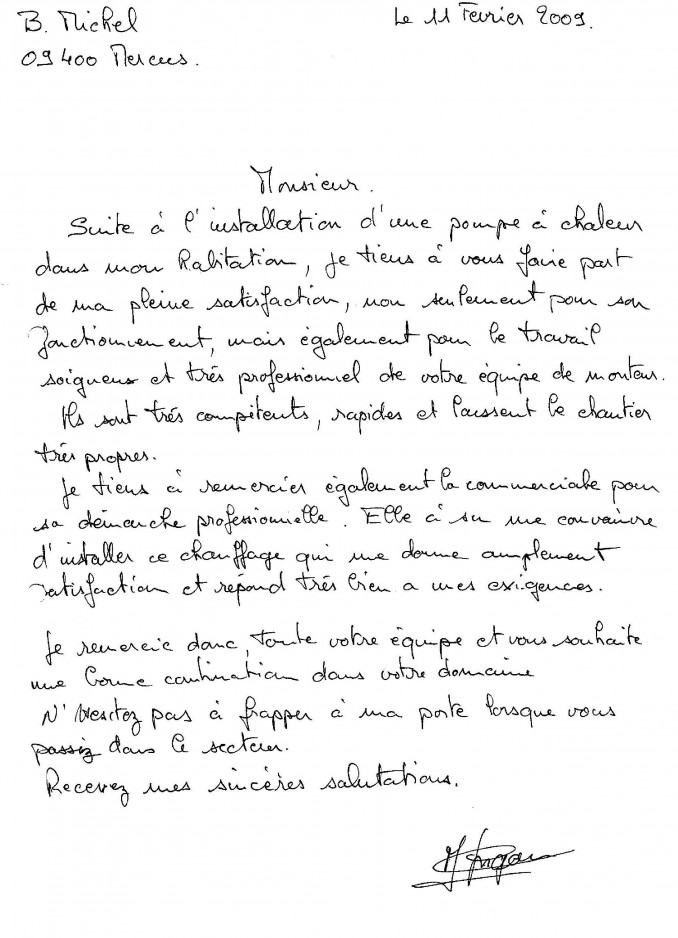 B. Michel
Le 11 Fevrier 2009.
09400 Mercus.
Monsieur.
Suite à l'installation d'une pompe à chaleur
dans mon habitation, je tiens à vous faire part
de ma pleine satisfaction, non seulement pour son
fonctionnement, mais également pour le travail
soigneux et trés professionnel de votre équipe de monteur.
Ils sont trés compétents, rapides et laissent le chantier
trés propres.
Je tiens à remercier également la commerciale pour
sa démarche professionnelle. Elle à su me convaincre
d'installer ce chauffage qui me donne amplement
satisfaction et répond trés bien a mes exigences.
Je remercie donc, toute votre équipe et vous souhaite
une bonne continuation dans votre domaine
N'hesitez pas à frapper à ma porte lorsque vous
passiz dans le secteur.
Recevez mes sincères salutations.